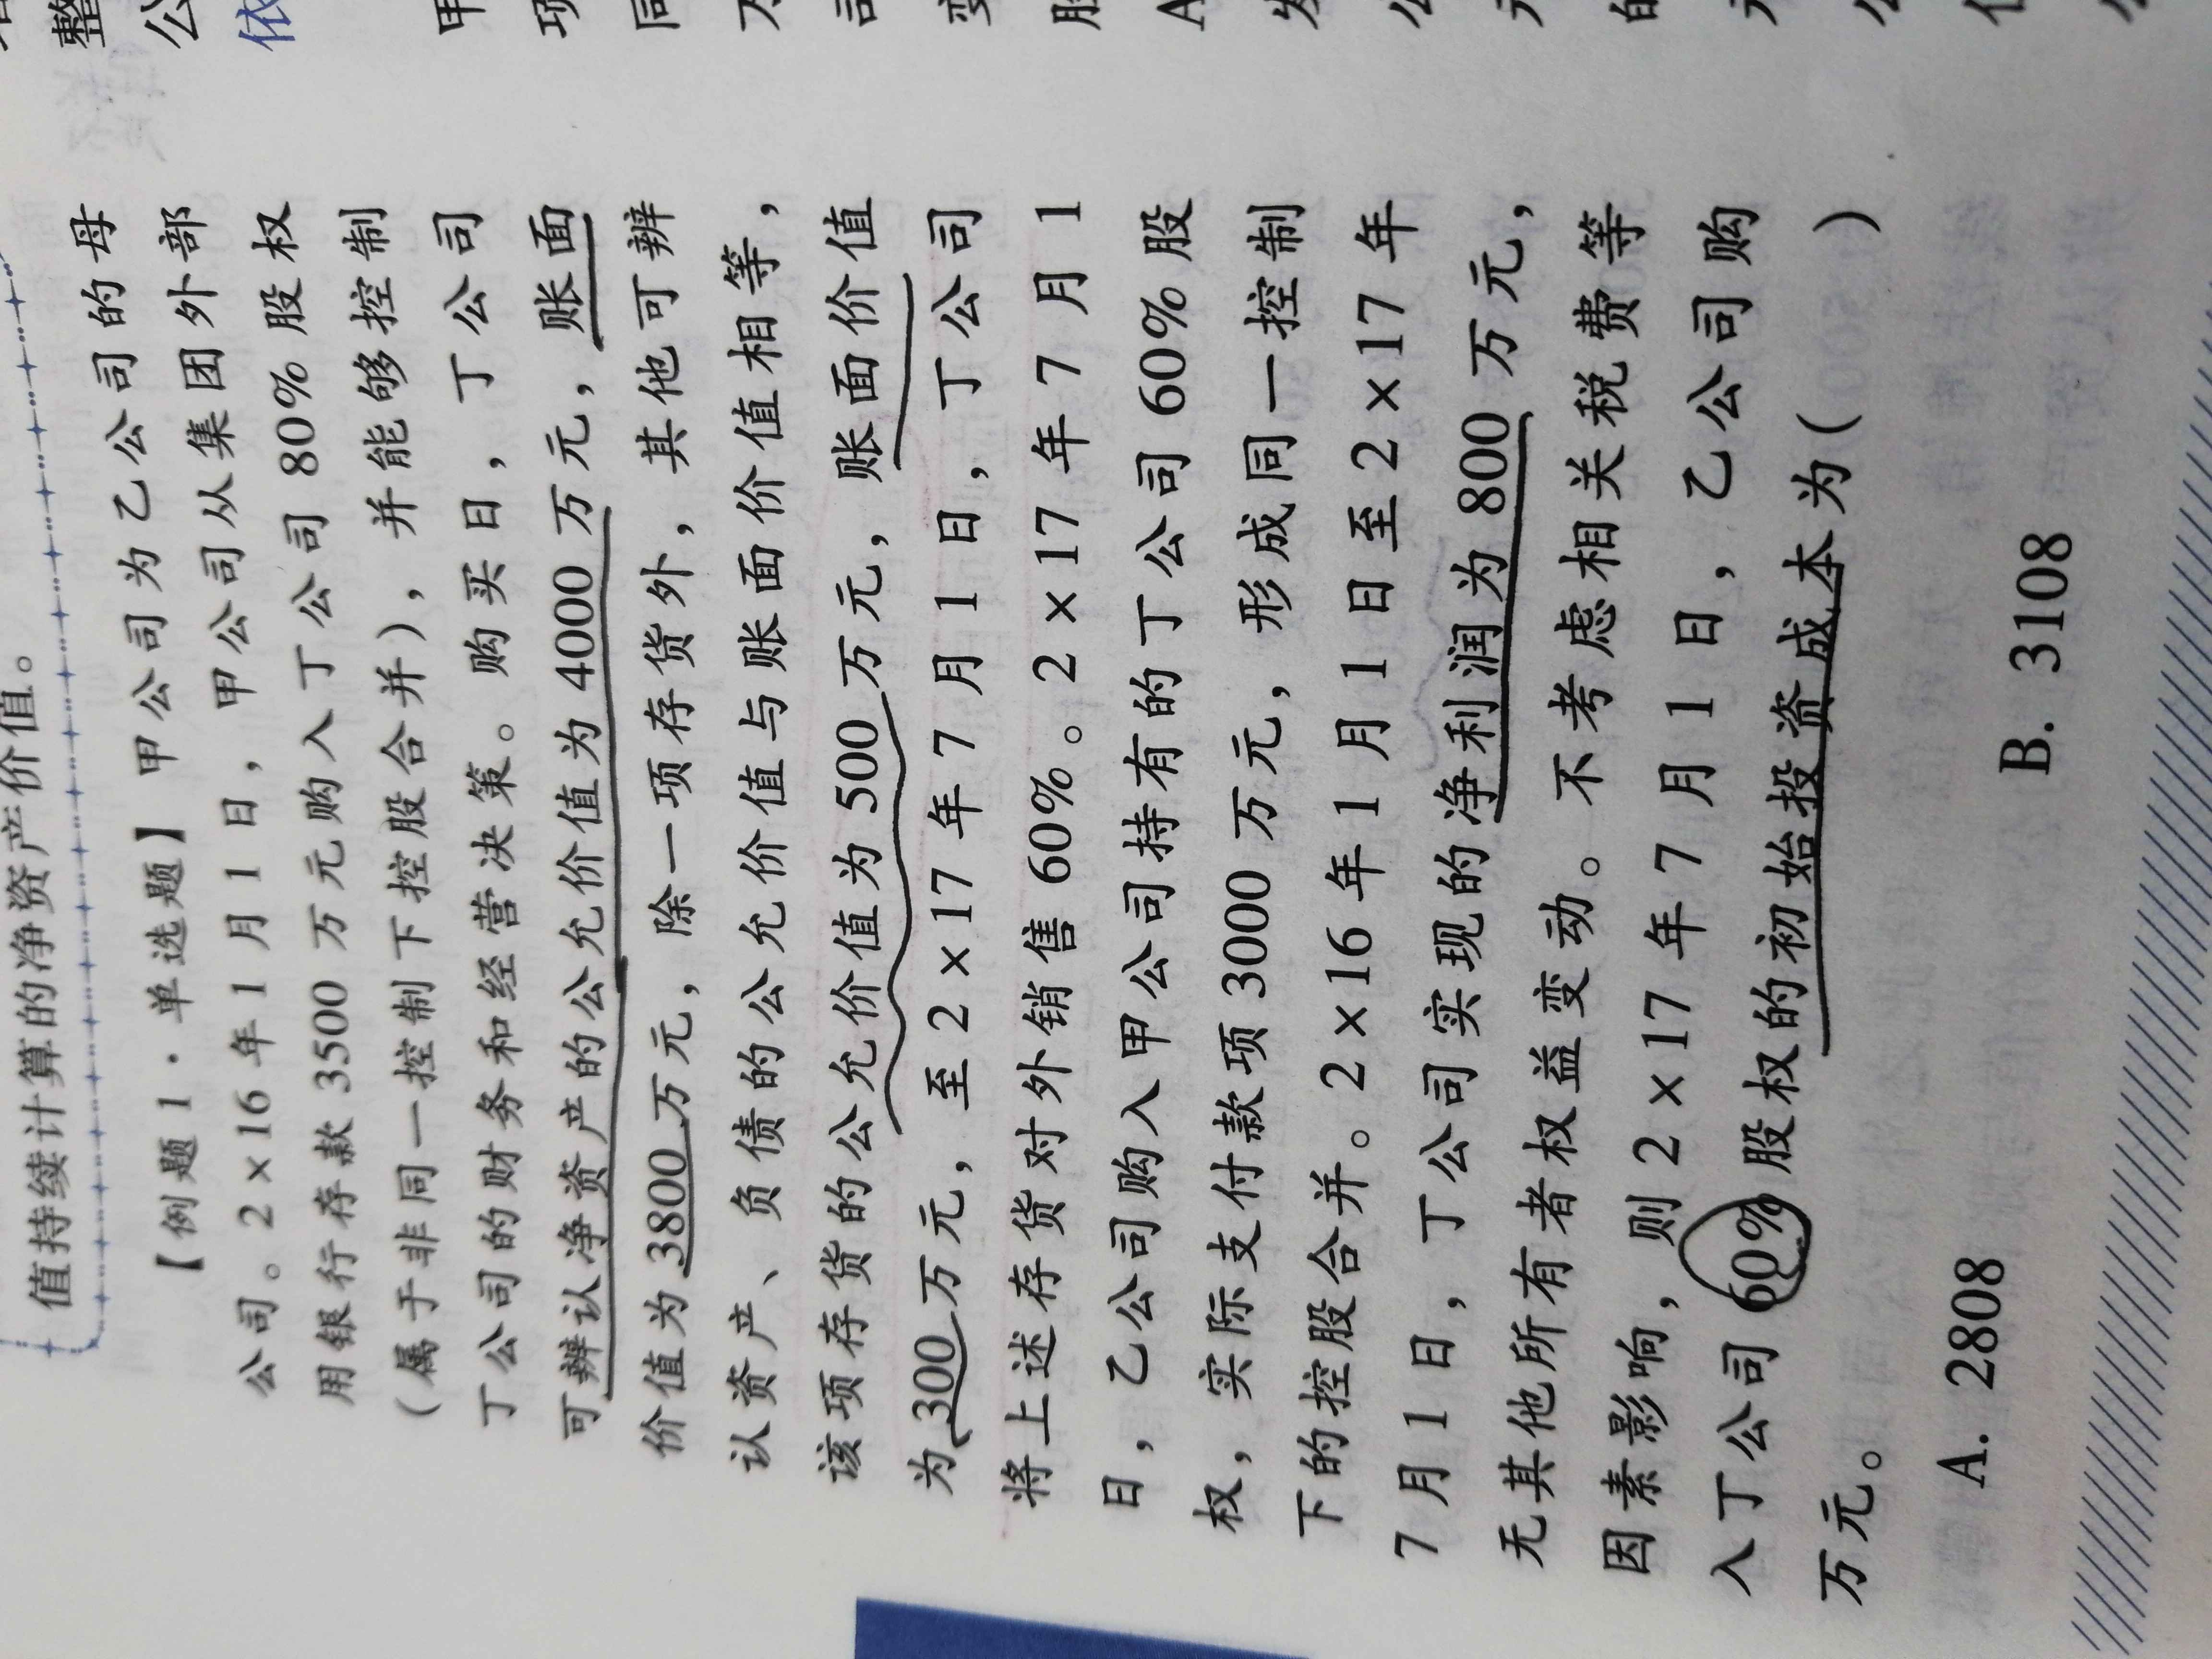 值持续计算的净资产价值。
【例题1·单选题】甲公司为乙公司的母
公司。2×16年1月1日，甲公司从集团外部
用银行存款3500万元购入丁公司80%股权
（属于非同一控制下控股合并），并能够控制
丁公司的财务和经营决策。购买日，丁公司
可辨认净资产的公允价值为4000万元，账面
价值为3800万元，除一项存货外，其他可辨
认资产、负债的公允价值与账面价值相等，
该项存货的公允价值为500万元，账面价值
为300万元，至2×17年7月1日，丁公司
将上述存货对外销售60%。2×17年7月1
日，乙公司购入甲公司持有的丁公司60%股
权，实际支付款项3000万元，形成同一控制
下的控股合并。2×16年1月1日至2×17年
7月1日，丁公司实现的净利润为800万元，
无其他所有者权益变动。不考虑相关税费等
因素影响，则2×17年7月1日，乙公司购
入丁公司60%股权的初始投资成本为（ ）
万元。
A. 2808 B. 3108
整
公
依
甲
项
同
司
A
公